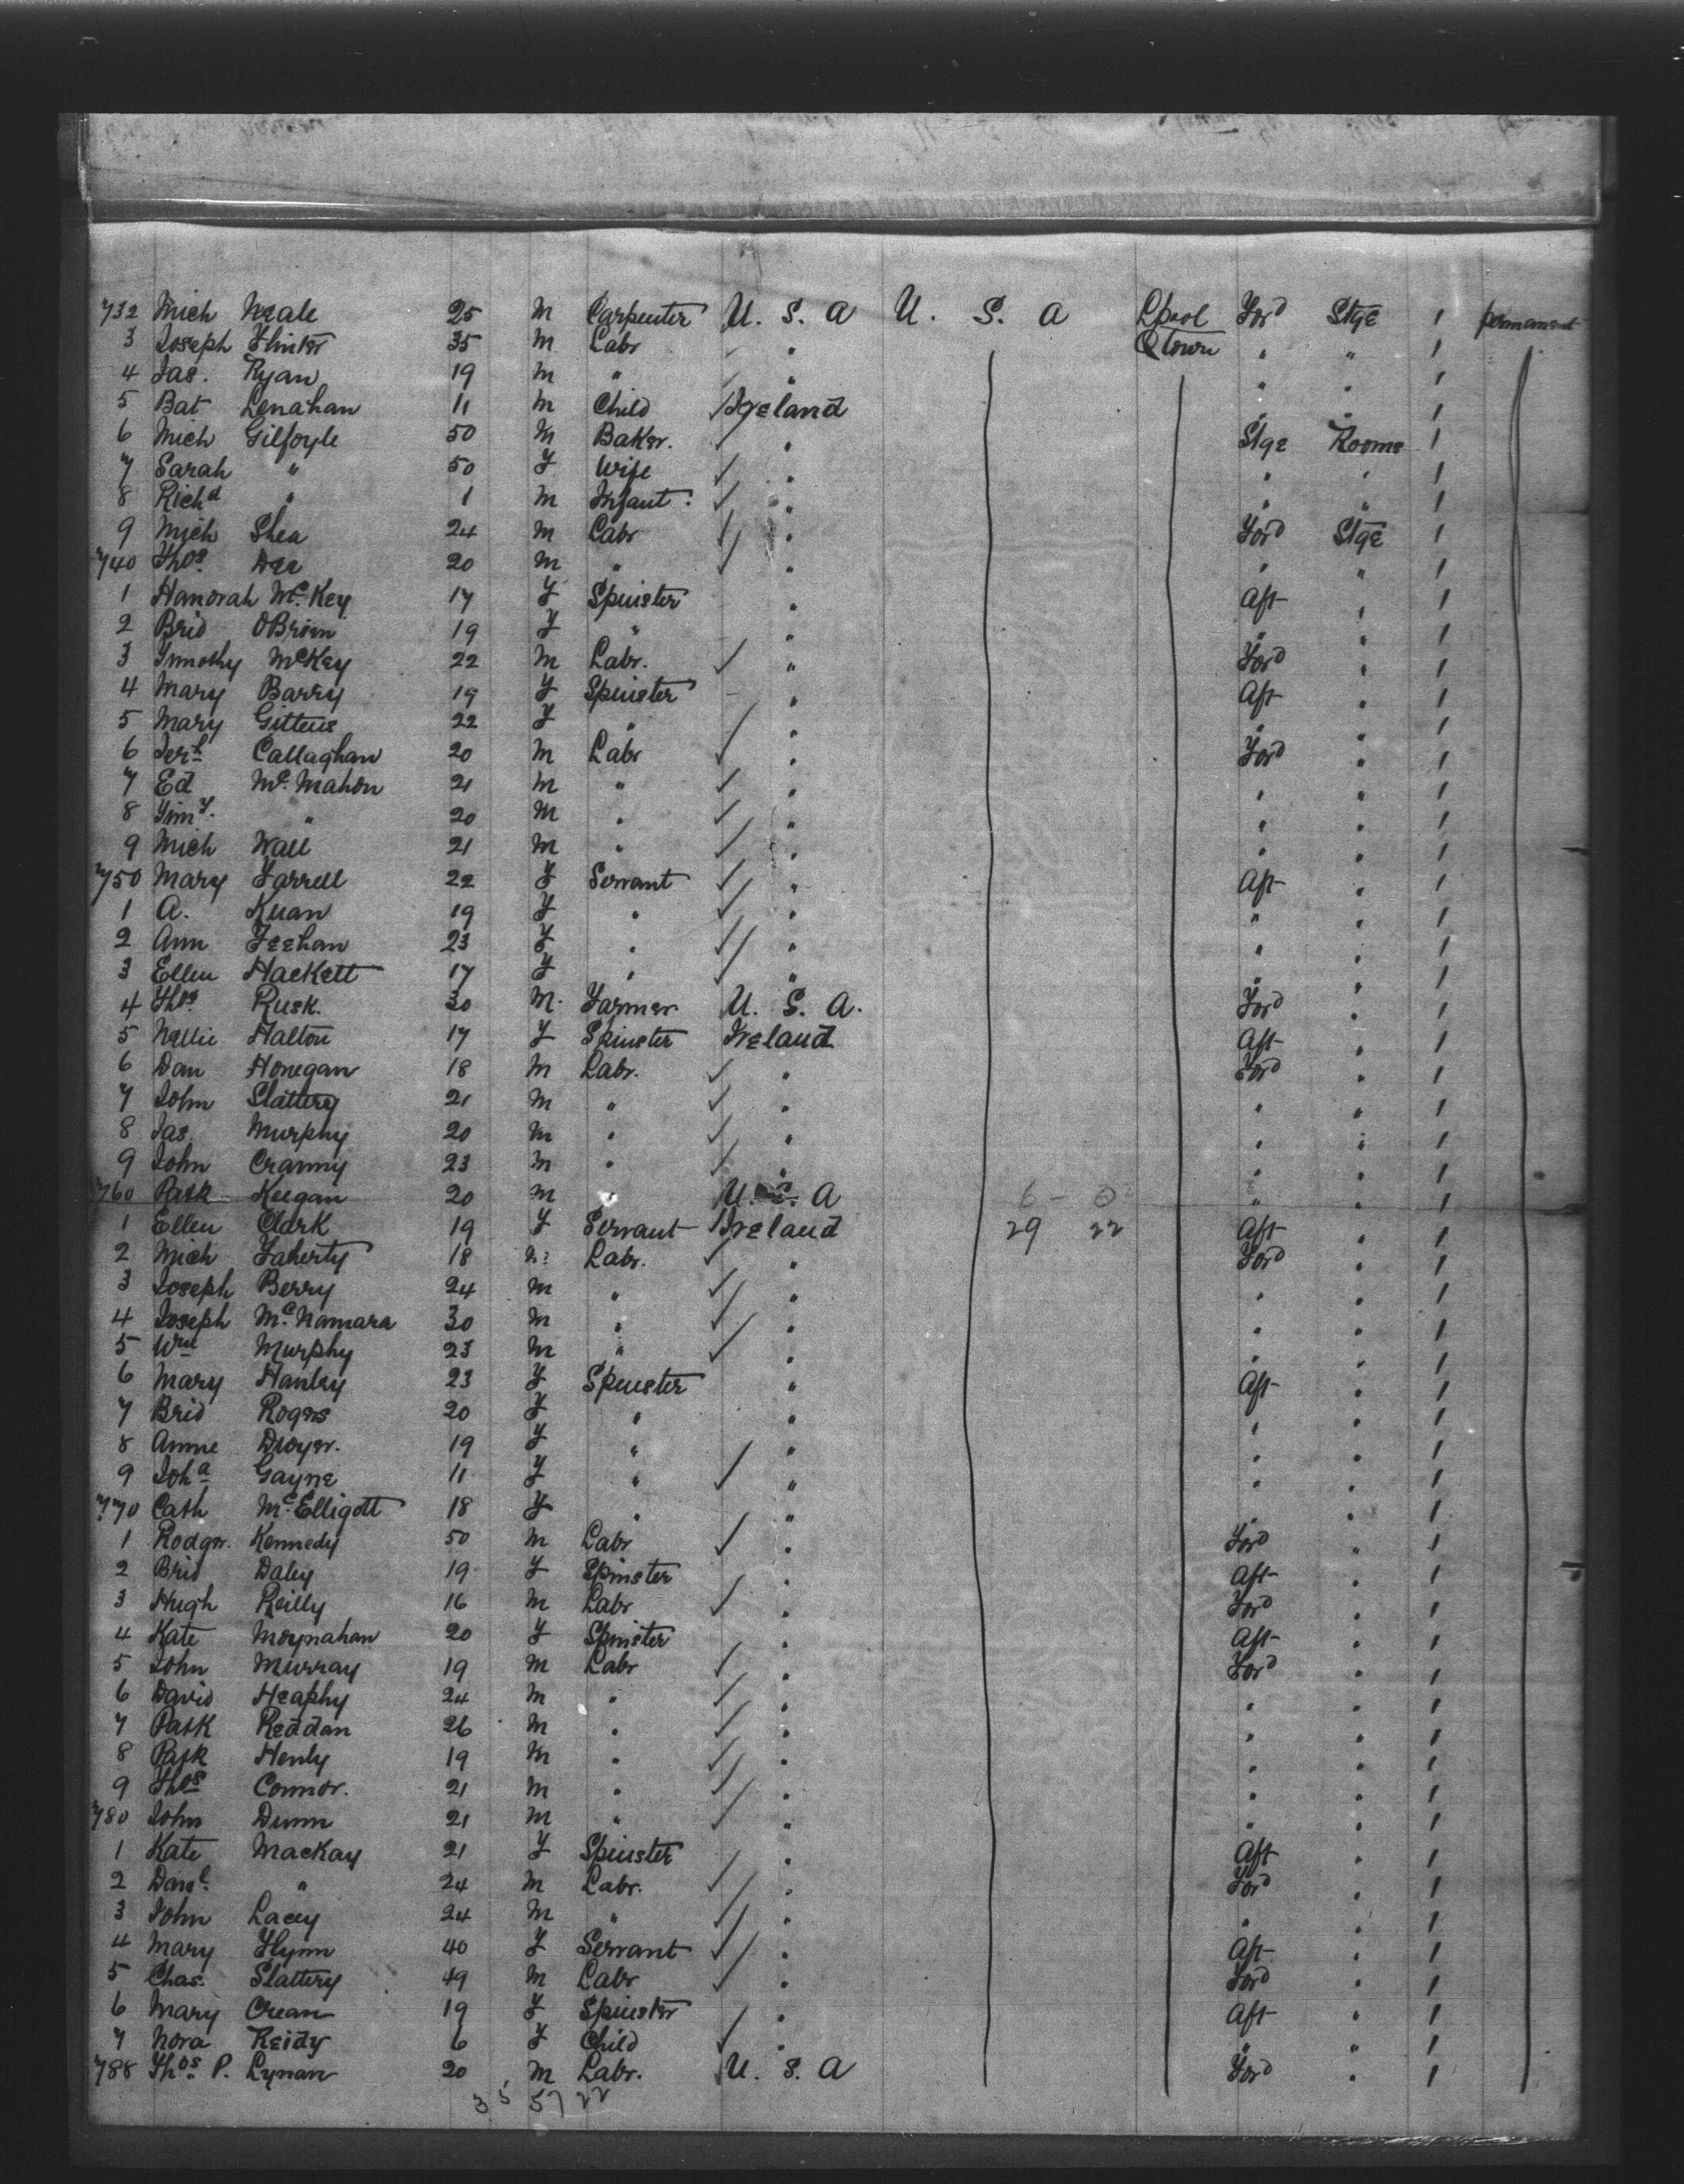 732 Mich Neale 25 M Carpenter U. S. A U. S. A Lpool Ford Stge 1 permanent
3 Joseph Flinter 35 M Labr " Qtown " " 1
4 Jas. Ryan 19 M " " " " 1
5 Bat Lenahan 11 M Child Ireland " " 1
6 Mich Gilfoyle 50 M Baker. " Stge Rooms 1
7 Sarah " 50 F Wife " " " 1
8 Richd " 1 M Infant. " " " 1
9 Mich Shea 24 M Labr " Ford Stge 1
740 Thos. Dee 20 M " " " " 1
1 Hanorah McKey 17 F Spinster " Aft " 1
2 Brid OBrien 19 F " " " " 1
3 Timothy McKey 22 M Labr. " Ford " 1
4 Mary Barry 19 F Spinster " Aft " 1
5 Mary Gittens 22 F " " " " 1
6 Jerh Callaghan 20 M Labr " Ford " 1
7 Ed McMahon 21 M " " " " 1
8 Timy. " 20 M " " " " 1
9 Mich Wall 21 M " " " " 1
750 Mary Farrell 22 F Servant " Aft " 1
1 A. Kuan 19 F " " " " 1
2 Ann Feehan 23 F " " " " 1
3 Ellen Hackett 17 F " " " " 1
4 Thos Rusk. 30 M. Farmer U. S. A. Ford " 1
5 Nellie Halton 17 F Spinster Ireland Aft " 1
6 Dan Honegan 18 M Labr. " Ford " 1
7 John Slattery 21 M " " " " 1
8 Jas Murphy 20 M " " " " 1
9 John Cranny 23 M " " " " 1
760 Patk Keegan 20 M " U. S. A 6 - 0 " " 1
1 Ellen Clark 19 F Servant Ireland 29 22 Aft " 1
2 Mich Faherty 18 M Labr. " Ford " 1
3 Joseph Berry 24 M " " " " 1
4 Joseph McNamara 30 M " " " " 1
5 Wm Murphy 23 M " " " " 1
6 Mary Hanley 23 F Spinster " Aft " 1
7 Brid Rogers 20 F " " " " 1
8 Annie Dwyer. 19 F " " " " 1
9 Joha Gayne 11 F " " " " 1
770 Cath McElligott 18 F " " " " 1
1 Rodger. Kennedy 50 M Labr " Ford " 1
2 Brid Daley 19 F Spinster " Aft " 1
3 Hugh Reilly 16 M Labr " Ford " 1
4 Kate Moynahan 20 F Spinster " Aft " 1
5 John Murray 19 M Labr " Ford " 1
6 David Heaphy 24 M " " " " 1
7 Patk Reddan 26 M " " " " 1
8 Patk Henly 19 M " " " " 1
9 Thos Connor. 21 M " " " " 1
780 John Dunn 21 M " " " " 1
1 Kate Mackay 21 F Spinster " Aft " 1
2 Danl. " 24 M Labr. " Ford " 1
3 John Lacey 24 M " " " " 1
4 Mary Flynn 40 F Servant " Aft " 1
5 Chas. Slattery 49 M Labr " Ford " 1
6 Mary Crean 19 F Spinster " Aft " 1
7 Nora Reidy 6 F Child " " " 1
788 Thos. P. Lynan 20 M Labr. U. S. A Ford " 1
35 57 22